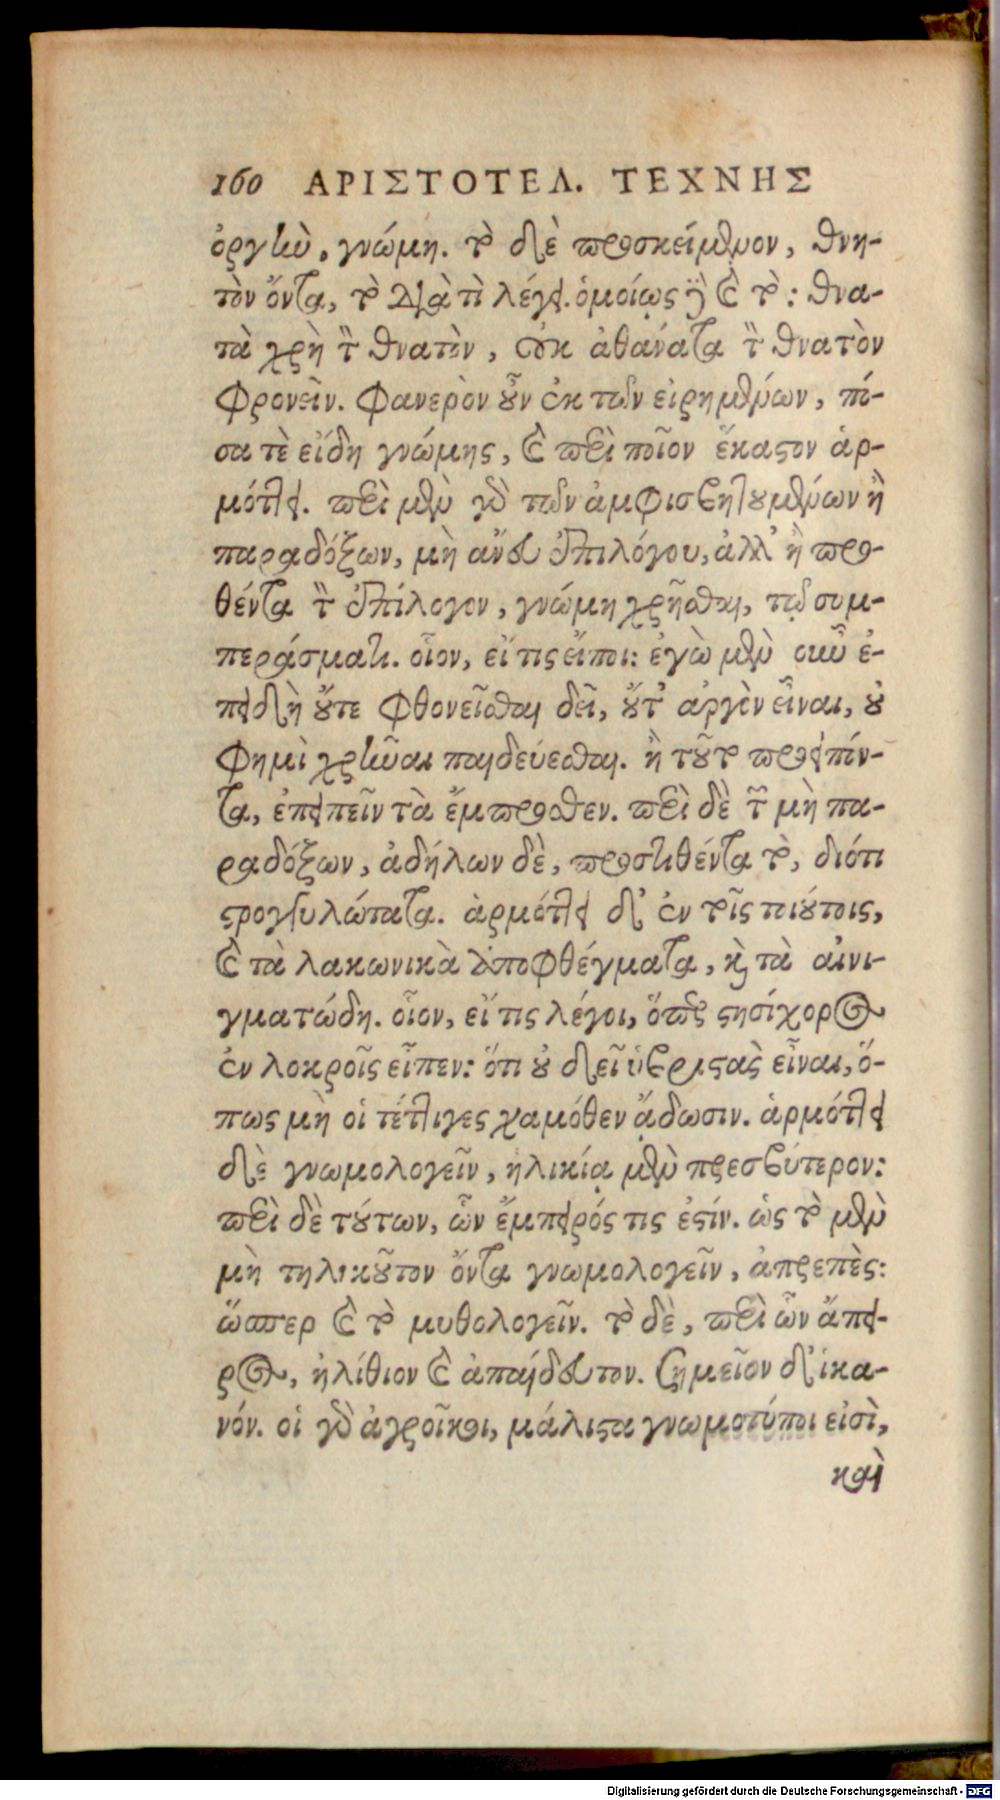 160 ΑΡΙΣΤΟΤΕΛ. ΤΕΧΝΗΣ
ὀργὴν, γνώμη. τὸ δὲ προσκείμενον, θνη-
τὸν ὄντα, τὸ διὰ τὶ λέγει. ὁμοίως δὲ καὶ τὸ: θνα-
τὰ χρὴ τὸν θνατὸν, οὐκ ἀθανάτα τὸν θνατὸν
φρονεῖν. φανερὸν οὖν ἐκ τῶν εἰρημένων, πό-
σα τὲ εἴδη γνώμης, καὶ περὶ ποῖον ἕκαστον ἁρ-
μόττει. περὶ μὲν γὰρ τῶν ἀμφισβητουμένων ἢ
παραδόξων, μὴ ἄνευ ἐπιλόγου, ἀλλ' ἢ προ-
θέντα τὸν ἐπίλογον, γνώμῃ χρῆσθαι, τῷ συμ-
περάσματι. οἷον, εἴ τις εἴποι: ἐγὼ μὲν οὖν ἐ-
πειδὴ οὔτε φθονεῖσθαι δεῖ, οὔτ' ἀργὸν εἶναι, οὐ
φημὶ χρῆναι παιδεύεσθαι. ἢ τοῦτο προειπόν-
τα, ἐπειπεῖν τὰ ἔμπροσθεν. περὶ δὲ τῶν μὴ πα-
ραδόξων, ἀδήλων δὲ, προστιθέντα τὸ, διότι
στρογγυλώτατα. ἁρμόττει δ' ἐν τοῖς τοιούτοις,
καὶ τὰ λακωνικὰ ἀποφθέγματα, καὶ τὰ αἰνι-
γματώδη. οἷον, εἴ τις λέγοι, ὅπερ στησίχορος
ἐν λοκροῖς εἶπεν: ὅτι οὐ δεῖ ὑβριστὰς εἶναι, ὅ-
πως μὴ οἱ τέττιγες χαμόθεν ᾄδωσιν. ἁρμόττει
δὲ γνωμολογεῖν, ἡλικίᾳ μὲν πρεσβύτερον:
περὶ δὲ τούτων, ὧν ἔμπειρός τις ἐστίν. ὡς τὸ μὲν
μὴ τηλικοῦτον ὄντα γνωμολογεῖν, ἀπρεπὲς:
ὥσπερ καὶ τὸ μυθολογεῖν. τὸ δὲ, περὶ ὧν ἄπει-
ρος, ἠλίθιον καὶ ἀπαίδευτον. σημεῖον δ' ἱκα-
νόν. οἱ γὰρ ἀγροῖκοι, μάλιστα γνωμοτύποι εἰσὶ,
καὶ
Digitalisierung gefördert durch die Deutsche Forschungsgemeinschaft - DFG